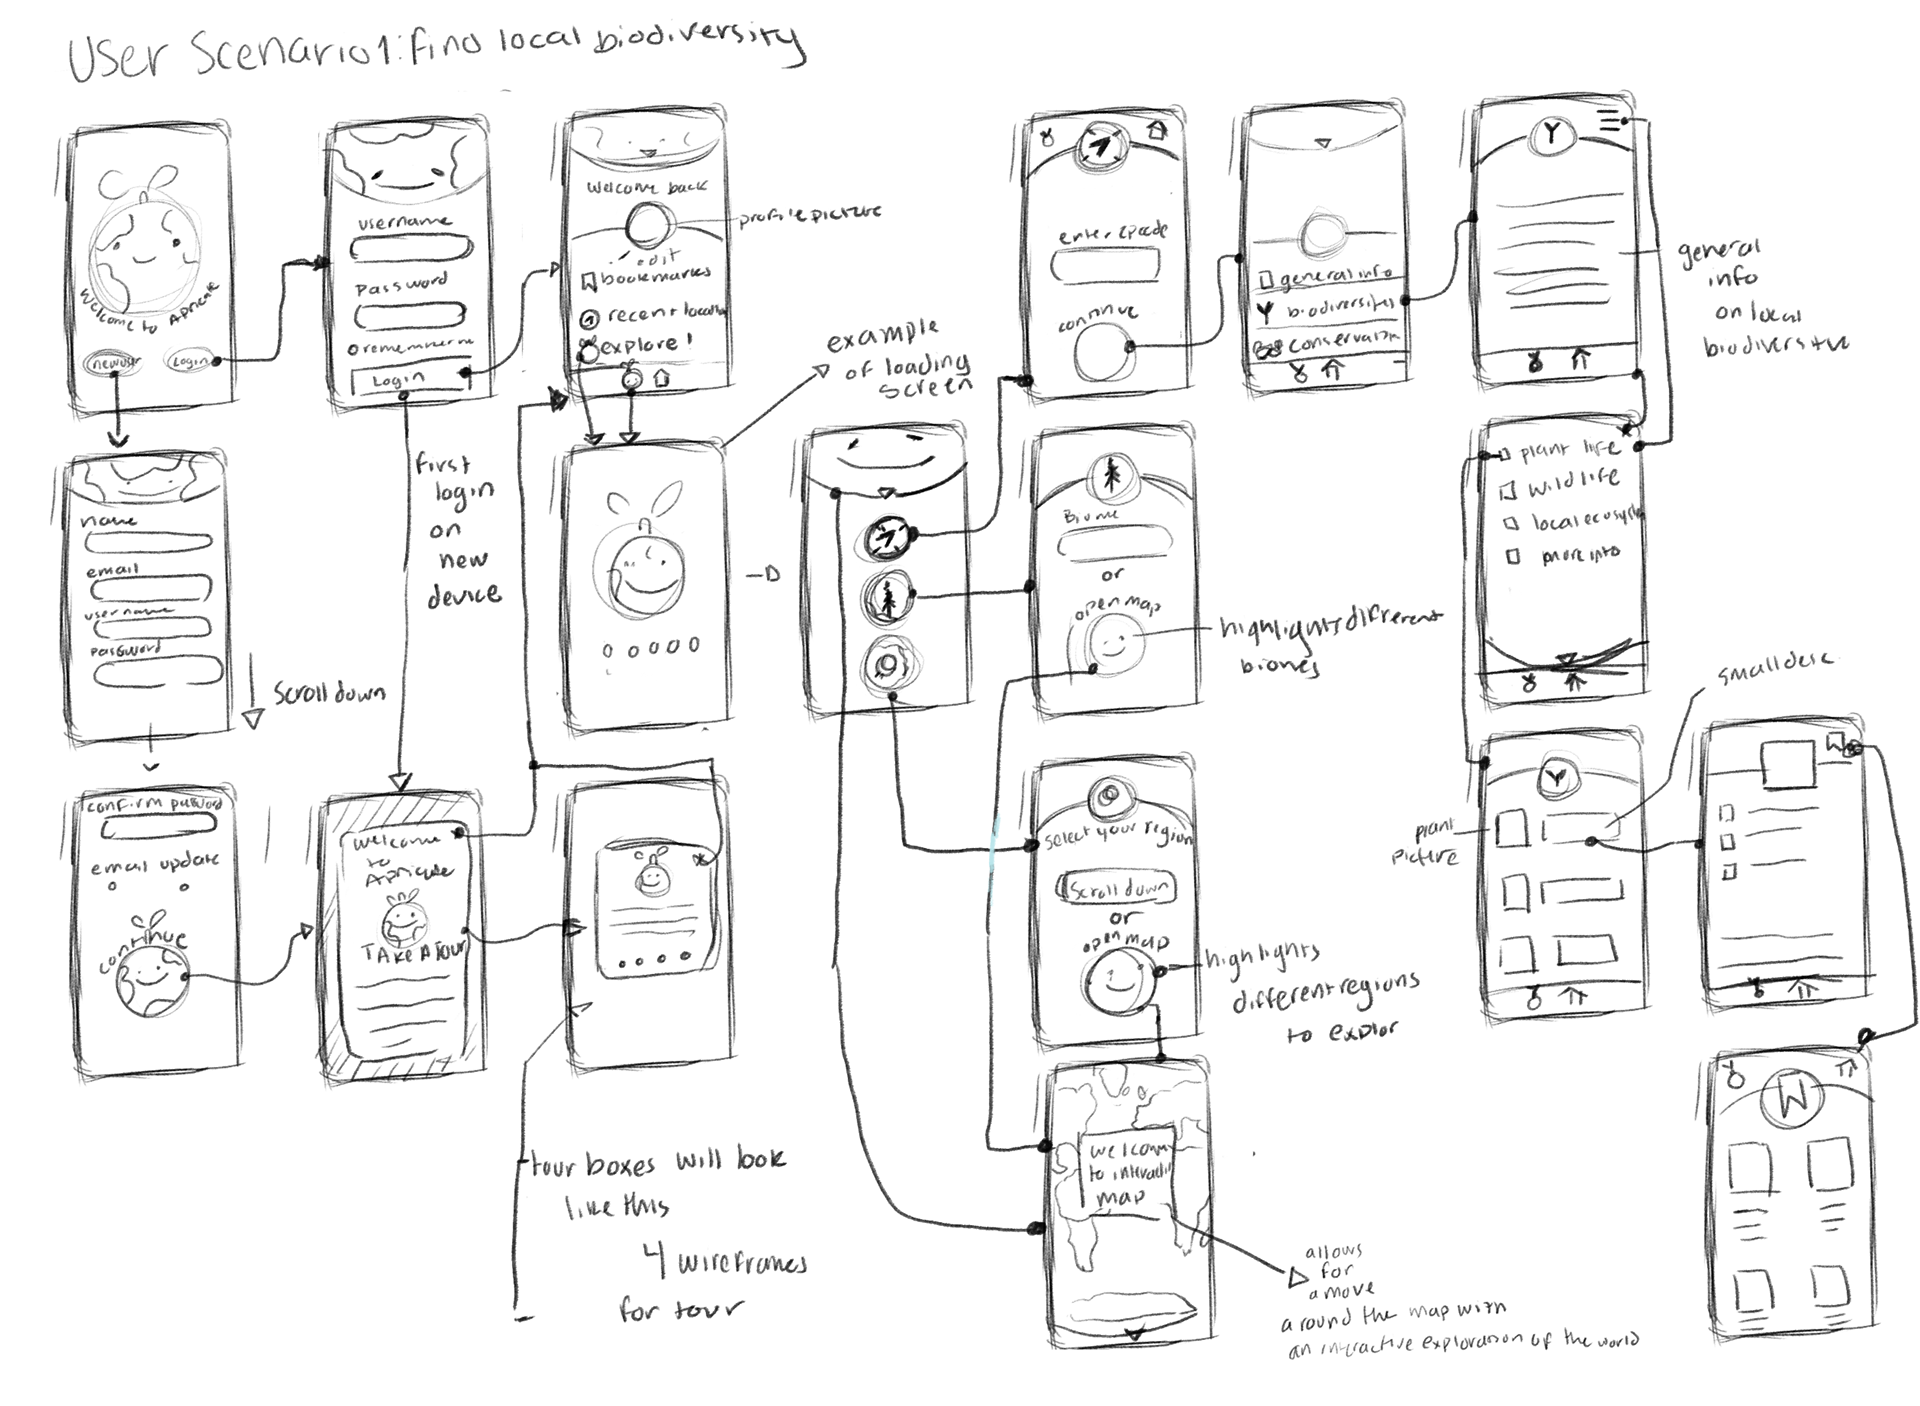 User Scenario 1: find local biodiversity
Welcome to Apricate
new user
Login
username
password
o rememner me
Login
Welcome back
profile picture
edit
bookmarks
explore!
example
of loading
screen
first
login
on
new
device
name
email
username
password
scroll down
confirm password
email update
continue
Welcome
to
Apricate
TAKE A Tour
tour boxes will look
like this
4 wireframes
for tour
continue
general info
conservation
general
info
on local
Biome
or
open map
highlights different
biomes
plant life
wild life
local ecosystem
more info
small desc
plant
picture
select your region
scroll down
or
open map
highlights
different regions
to explor
welcome
to interacti
map
allows
for
a move
around the map with
an interactive exploration of the world